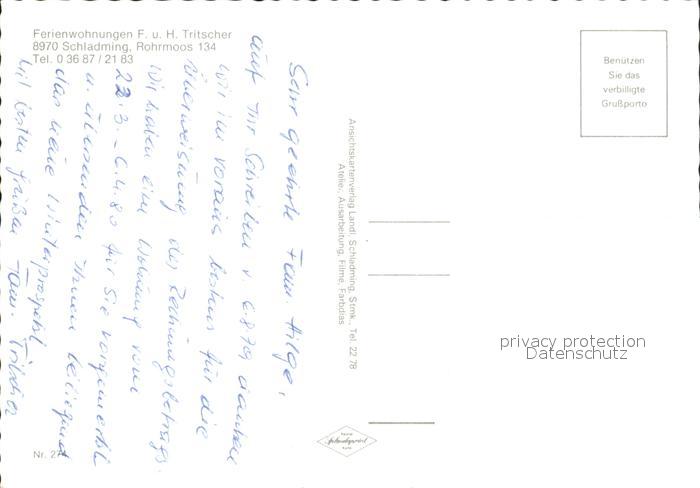 Ferienwohnungen F. u. H. Tritscher
8970 Schladming, Rohrmoos 134
Tel. 0 36 87 / 21 83
Benützen
Sie das
verbilligte
Grußporto
Sehr geehrte Fam. Hilge,
auf Ihr Schreiben v. 6.8.79 danken
wir im voraus bestens für die
Überweisung des Rechnungsbetrags.
Wir haben eine Wohnung vom
22.3. - 6.4.80 für Sie vorgemerkt
u. übersenden Ihnen beiliegend
das kleine Winterprospekt.
Mit besten Grüßen Fam. Tritscher
Ansichtskartenverlag Landl, Schladming, Stmk., Tel. 22 78
Atelier, Ausarbeitung, Filme, Farbdias
privacy protection
Datenschutz
Nr. 27